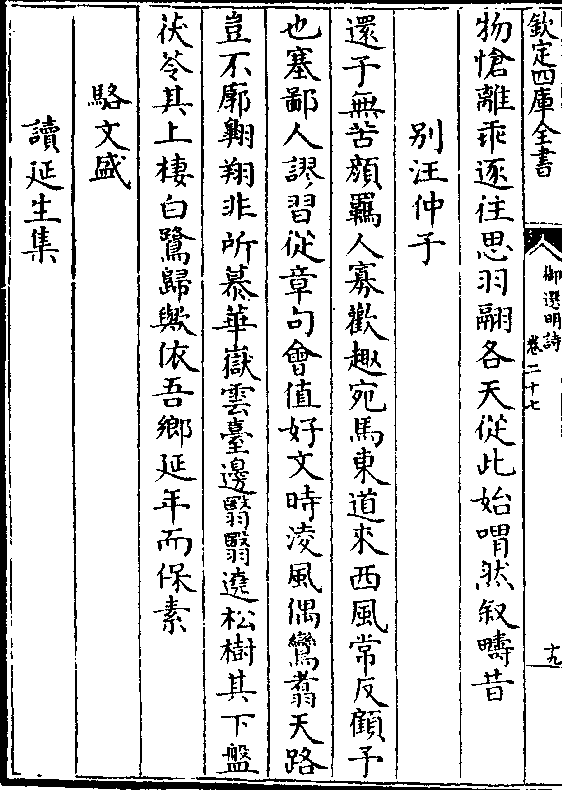 欽定四庫全書
御選明詩
卷二十七
十九
物愴離乖逐往思羽翮各天從此始喟然叙疇昔
別汪仲子
還子無苦顔羈人寡歡趣宛馬東道來西風常反顧予
也塞鄙人謬習從章句會值好文時凌風偶鸞翥天路
豈不廓翺翔非所慕華嶽雲臺邊翳翳遶松樹其下盤
茯苓其上棲白鷺歸歟依吾鄉延年而保素
駱文盛
讀延生集